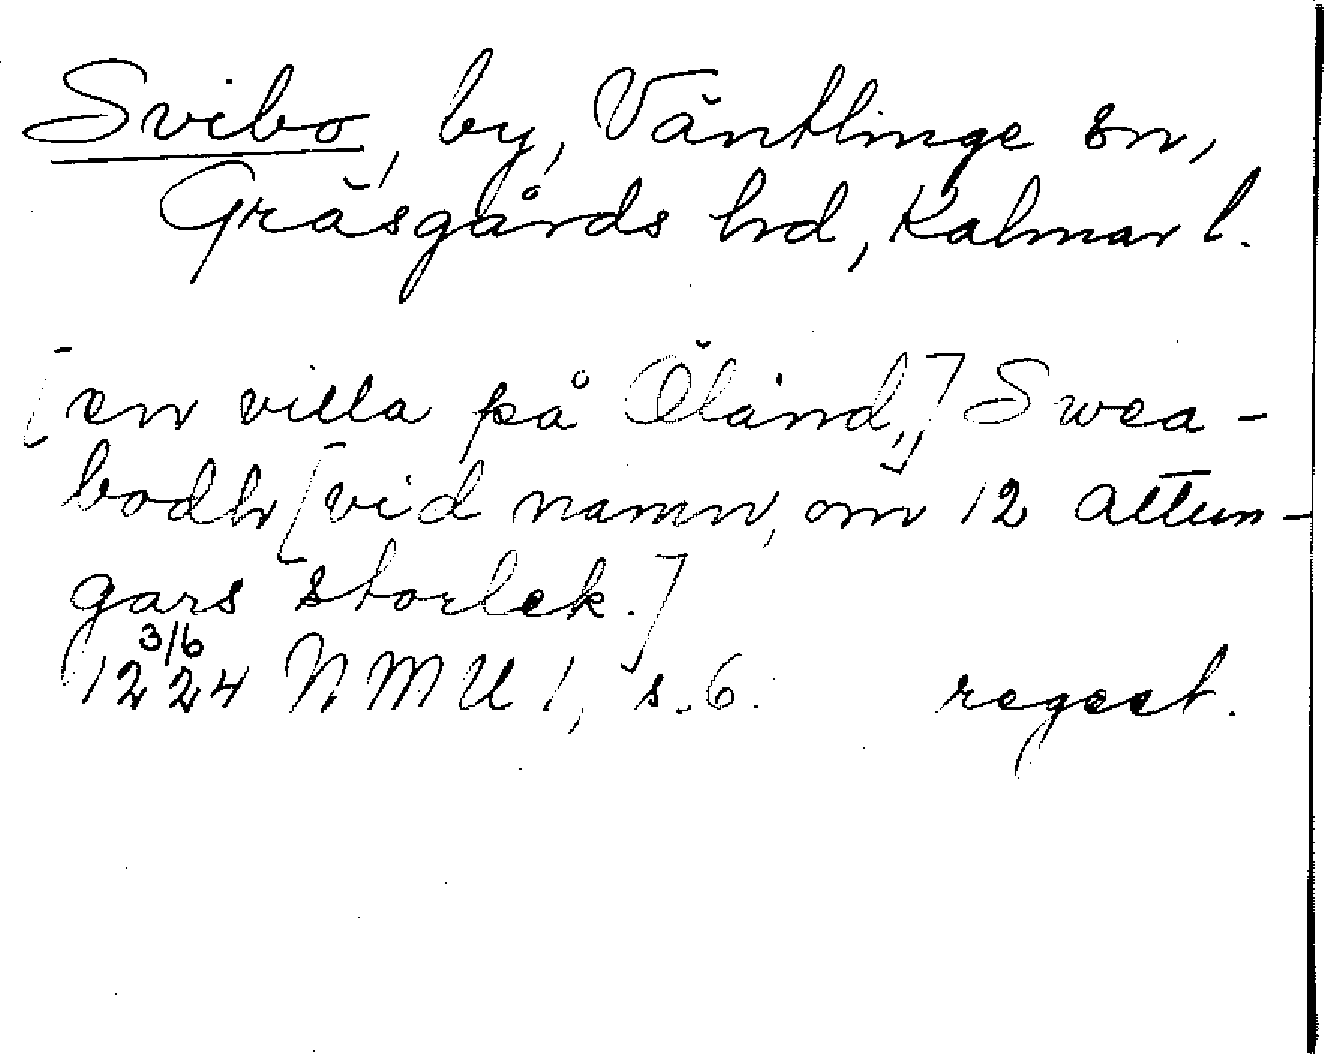 Svibo, by, Väntlinge sn,
Gräsgårds hd, Kalmar l.
[en villa på Öland,] Swea-
bodh [vid namn, om 12 attun-
gars storlek.]
1224 3/6 NMU 1, s. 6. regest.